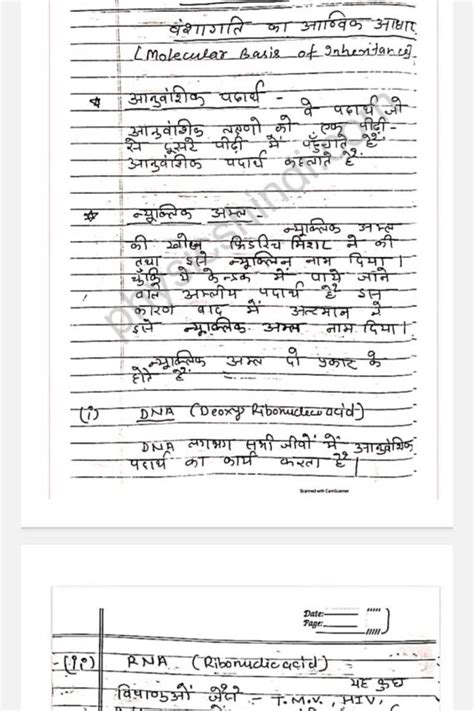 वंशागति का आण्विक आधार
(Molecular Basis of Inheritance)
* आनुवंशिक पदार्थ -
वे पदार्थ जो
आनुवंशिक लक्षणो को एक पीढी
से दूसरे पीढी में पहुँचाते हैं
आनुवंशिक पदार्थ कहलाते हैं
* न्यूक्लिक अम्ल -
न्यूक्लिक अम्ल
की खोज फ्रेडरिच मिशर ने की
तथा इसे न्यूक्लिन नाम दिया।
चूँकि ये केन्द्रक में पाये जाने
वाले अम्लीय पदार्थ हैं इस
कारण बाद में अल्टमान ने
इसे न्यूक्लिक अम्ल नाम दिया।
न्यूक्लिक अम्ल दो प्रकार के
होते हैं -
(i) DNA (Deoxy Ribonucleic acid)
DNA लगभग सभी जीवों में आनुवंशिक
पदार्थ का कार्य करता है।
Scanned with CamScanner
Date:
Page:
(ii) RNA (Ribonucleic acid) -
यह कुछ
विषाणुओं जैसे - T.M.V., HIV,
physicshindi.com